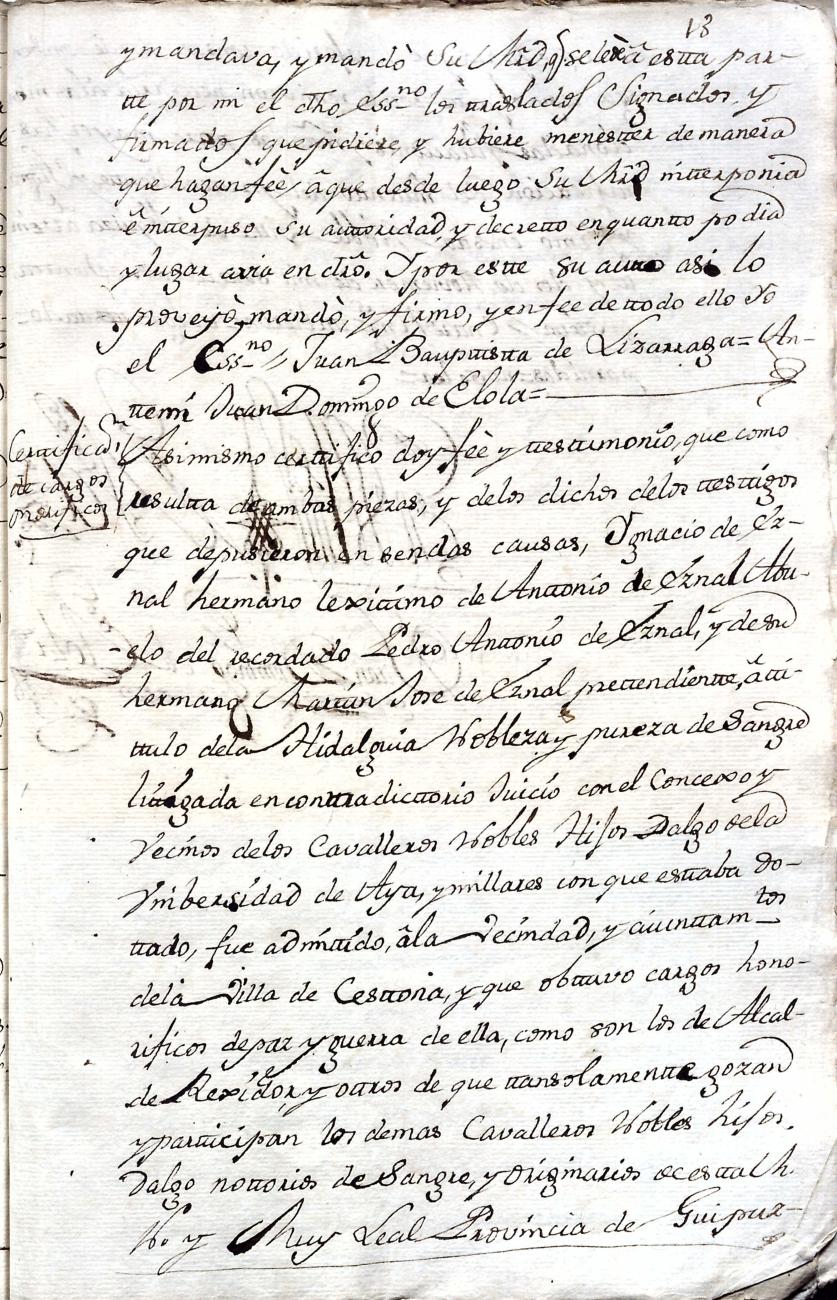 13
y mandava, y mandò Su Mrd, q̃ se le dẽ a esta par-
tte por mi el dho Ess.no los traslados Signados, y
firmados que pidiere, y hubiere menestter de manera
que hagan feè, â que desde luego Su Mrd intterponia
ê intterpuso su auttoridad y decretto en quantto podia
y lugar avia en dr̃o. Y por estte su autto asi lo
proveyò, mandò, y firmo, y en fee de ttodo ello Yo
el Ess.no Juan Bauptistta de Lizarraga = An-
ttemi Juan Domingo de Elola =
Certificac.n
de cargos
onorificos
Asimismo certtifico doy feè y testtimonio, que como
resultta de ambas piezas, y delos dichos delos testtigos
que depusieron en sendas causas, Ygnacio de Ez-
nal hermano lexittimo de Anttonio de Eznal Abu-
elo del recordado Pedro Anttonio de Eznal, y de su
hermano Marttin Jose de Eznal prettendientte, â ti-
ttulo dela Hidalguia Nobleza y pureza de Sangre
Juzgada en conttradictorio Juicio con el Concexo y
Vecinos delos Cavalleros Nobles Hijos Dalgo dela
Vnibersidad de Aya, y millares con que esttaba do-
ttado, fue admittido, âla Vecindad, y aiunttam.ttos
dela Villa de Cesttona, y que obttuvo cargos hono-
rificos de paz y guerra de ella, como son los de Alcal-
de Rexidor, y ottros de que ttansolamentte gozan
y partticipan los demas Cavalleros Nobles hijos.
Dalgo nottorios de Sangre, y originarios de estta M.
N. y Muy Leal Provincia de Guipuz-